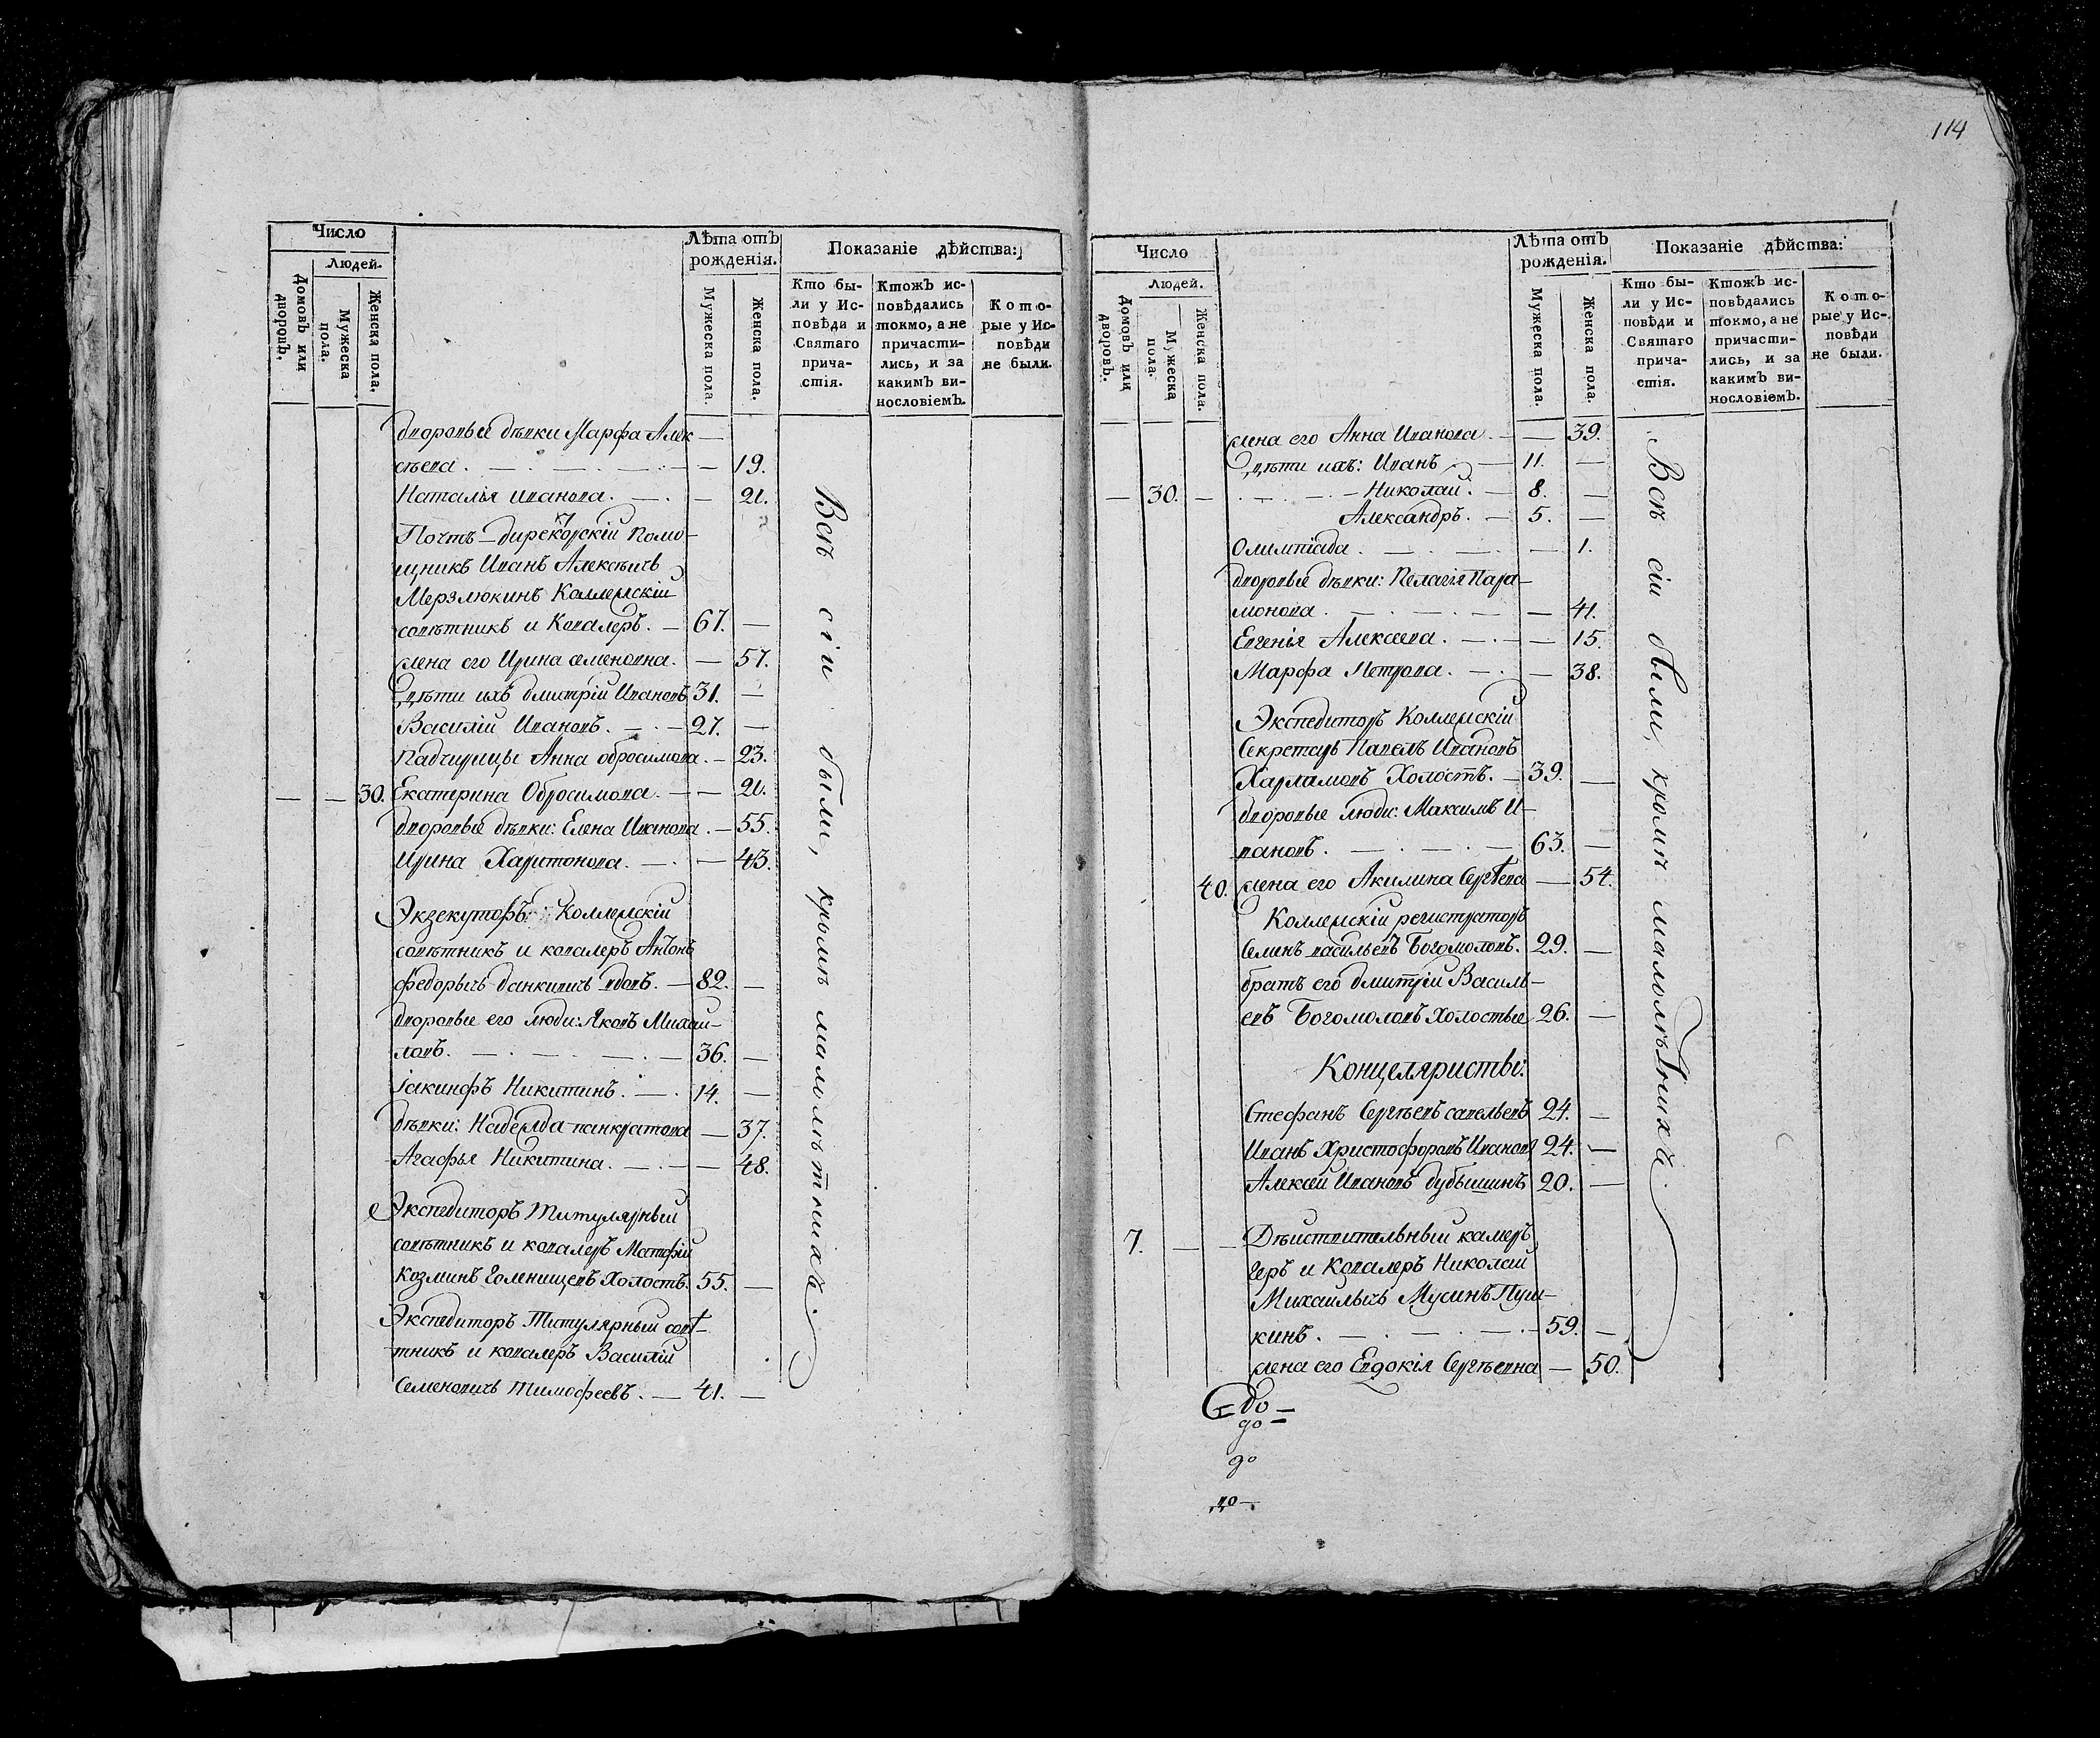 Число
Людей.
Домовъ или дворовъ.
Мужеска пола.
Женска пола.
Лѣта отъ рожденія.
Мужеска пола.
Женска пола.
Показаніе дѣйства:
Кто были у Исповѣди и Святаго причастія.
Ктожъ исповѣдались токмо, а не причастились, и за какимъ винословіемъ.
Которые у Исповѣди не были.
дворовые дѣвки Марфа Алек —
сѣева . — . — . — — 19.
Наталья иванова. — . — 21.
Почтъ-директорскій помо-
щникъ Иванъ Алексѣичь
Мерзлюкинъ Коллежскій
совѣтникъ и Кавалеръ. — 67. —
жена его Ирина семеновна. — 57.
дѣти ихъ дмитрій Ивановъ 31. —
Василій Ивановъ. — . — 27. —
Падчерицы Анна обросимова. — 23.
— — 30. Екатерина Обросимова. — — 21.
дворовые дѣвки: Елена Иванова. — 55.
Ирина Харитонова. — . — 43.
Экзекуторъ: Коллежскій
совѣтникъ и кавалеръ Антонъ
федорычь данкивичь вдовъ. — 82. —
дворовые его люди: Яковъ Михаи-
ловъ. — . — . — . — 36. —
іакинфъ Никитинъ. — . 14. —
дѣвки: Надежда панкратова — 37.
Агафья Никитина. — . — — 48.
Экспедиторъ Титулярный
совѣтникъ и кавалеръ Матфій
Козминъ Голенищевъ Холостъ. 55. —
Экспедиторъ Титулярный совѣ-
тникъ и кавалеръ Василій
Семеновичь Тимофеевъ. — 41. —
Всѣ сіи были, кромѣ малолѣтнихъ.
114
Число
Людей.
Домовъ или дворовъ.
Мужеска пола.
Женска пола.
Лѣта отъ рожденія.
Мужеска пола.
Женска пола.
Показаніе дѣйства:
Кто были у Исповѣди и Святаго причастія.
Ктожъ исповѣдались токмо, а не причастились, и за какимъ винословіемъ.
Которые у Исповѣди не были.
жена его Анна Иванова . — — 39.
дѣти ихъ: Иванъ — 11. —
— 30. — . — . — . — Николай. — 8. —
Александръ. — 5. —
Олимпіада . — . — . — 1.
дворовые дѣвки: Пелагія Пара-
монова . — . — . — — 41.
Евгенія Алексеева . — . — — 15.
Марфа Петрова. — . — 38.
Экспедиторъ Коллежскій
Секретарь Павелъ Ивановъ
Харламовъ Холостъ. — 39. —
дворовые люди: Максимъ И-
вановъ . — . — . — 63. —
40. жена его Акилина Сергѣева — 54.
Коллежскій регистраторъ
Семенъ васильевъ Богомоловъ. 29. —
братъ его дмитрій Василь-
евъ Богомоловъ Холостые 26. —
Концеляристы:
Стефанъ Сергѣевъ савельевъ 24. —
Иванъ Христофоровъ Ивановъ 24. —
Алексей Ивановъ дубышинъ 20. —
7. — — Дѣиствительный камеръ
геръ и Кавалеръ Николай
Михаилычь Мусинъ Пуш-
кинъ . — . — . — . — 59. —
жена его Евдокія Сергѣевна — 50.
Всѣ сіи были, кромѣ малолѣтнихъ.
до —
до —
до
до —